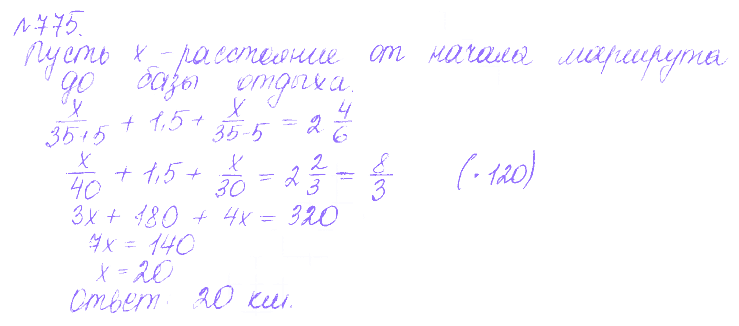 №775.
Пусть x – расстояние от начала маршрута
до базы отдыха.
x/(35+5) + 1,5 + x/(35-5) = 2 4/6
x/40 + 1,5 + x/30 = 2 2/3 = 8/3 (·120)
3x + 180 + 4x = 320
7x = 140
x = 20
Ответ: 20 км.